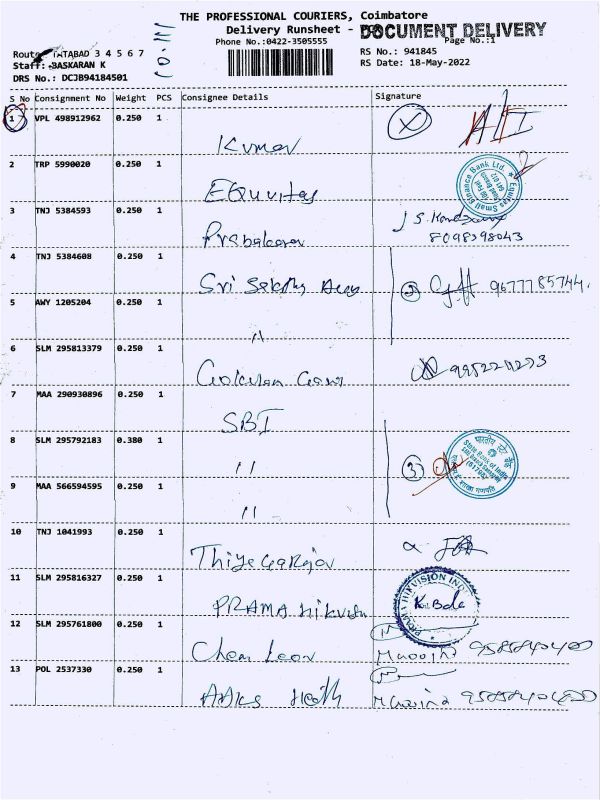 THE PROFESSIONAL COURIERS, Coimbatore
Delivery Runsheet - DOCUMENT DELIVERY
Phone No.:0422-3505555 Page No.:1
Route TATABAD 3 4 5 6 7 RS No.: 941845
Staff: BASKARAN K RS Date: 18-May-2022
DRS No.: DCJB94184501
S No Consignment No Weight PCS Consignee Details Signature
1 VPL 498912962 0.250 1
Kumar
2 TRP 5990020 0.250 1
Equitas Small Finance Bank Ltd.
3 TNJ 5384593 0.250 1
Prabakaran 8098398043
4 TNJ 5384608 0.250 1
Sri Sakthi 2 9677785744
5 AWY 1205204 0.250 1
"
6 SLM 295813379 0.250 1
7 MAA 290930896 0.250 1
SBI
8 SLM 295792183 0.380 1
" 3 भारतीय स्टेट बैंक
State Bank of India
9 MAA 566594595 0.250 1
"
10 TNJ 1041993 0.250 1
Thiyagarajan
11 SLM 295816327 0.250 1
PRAMA Hikvision
12 SLM 295761800 0.250 1
13 POL 2537330 0.250 1